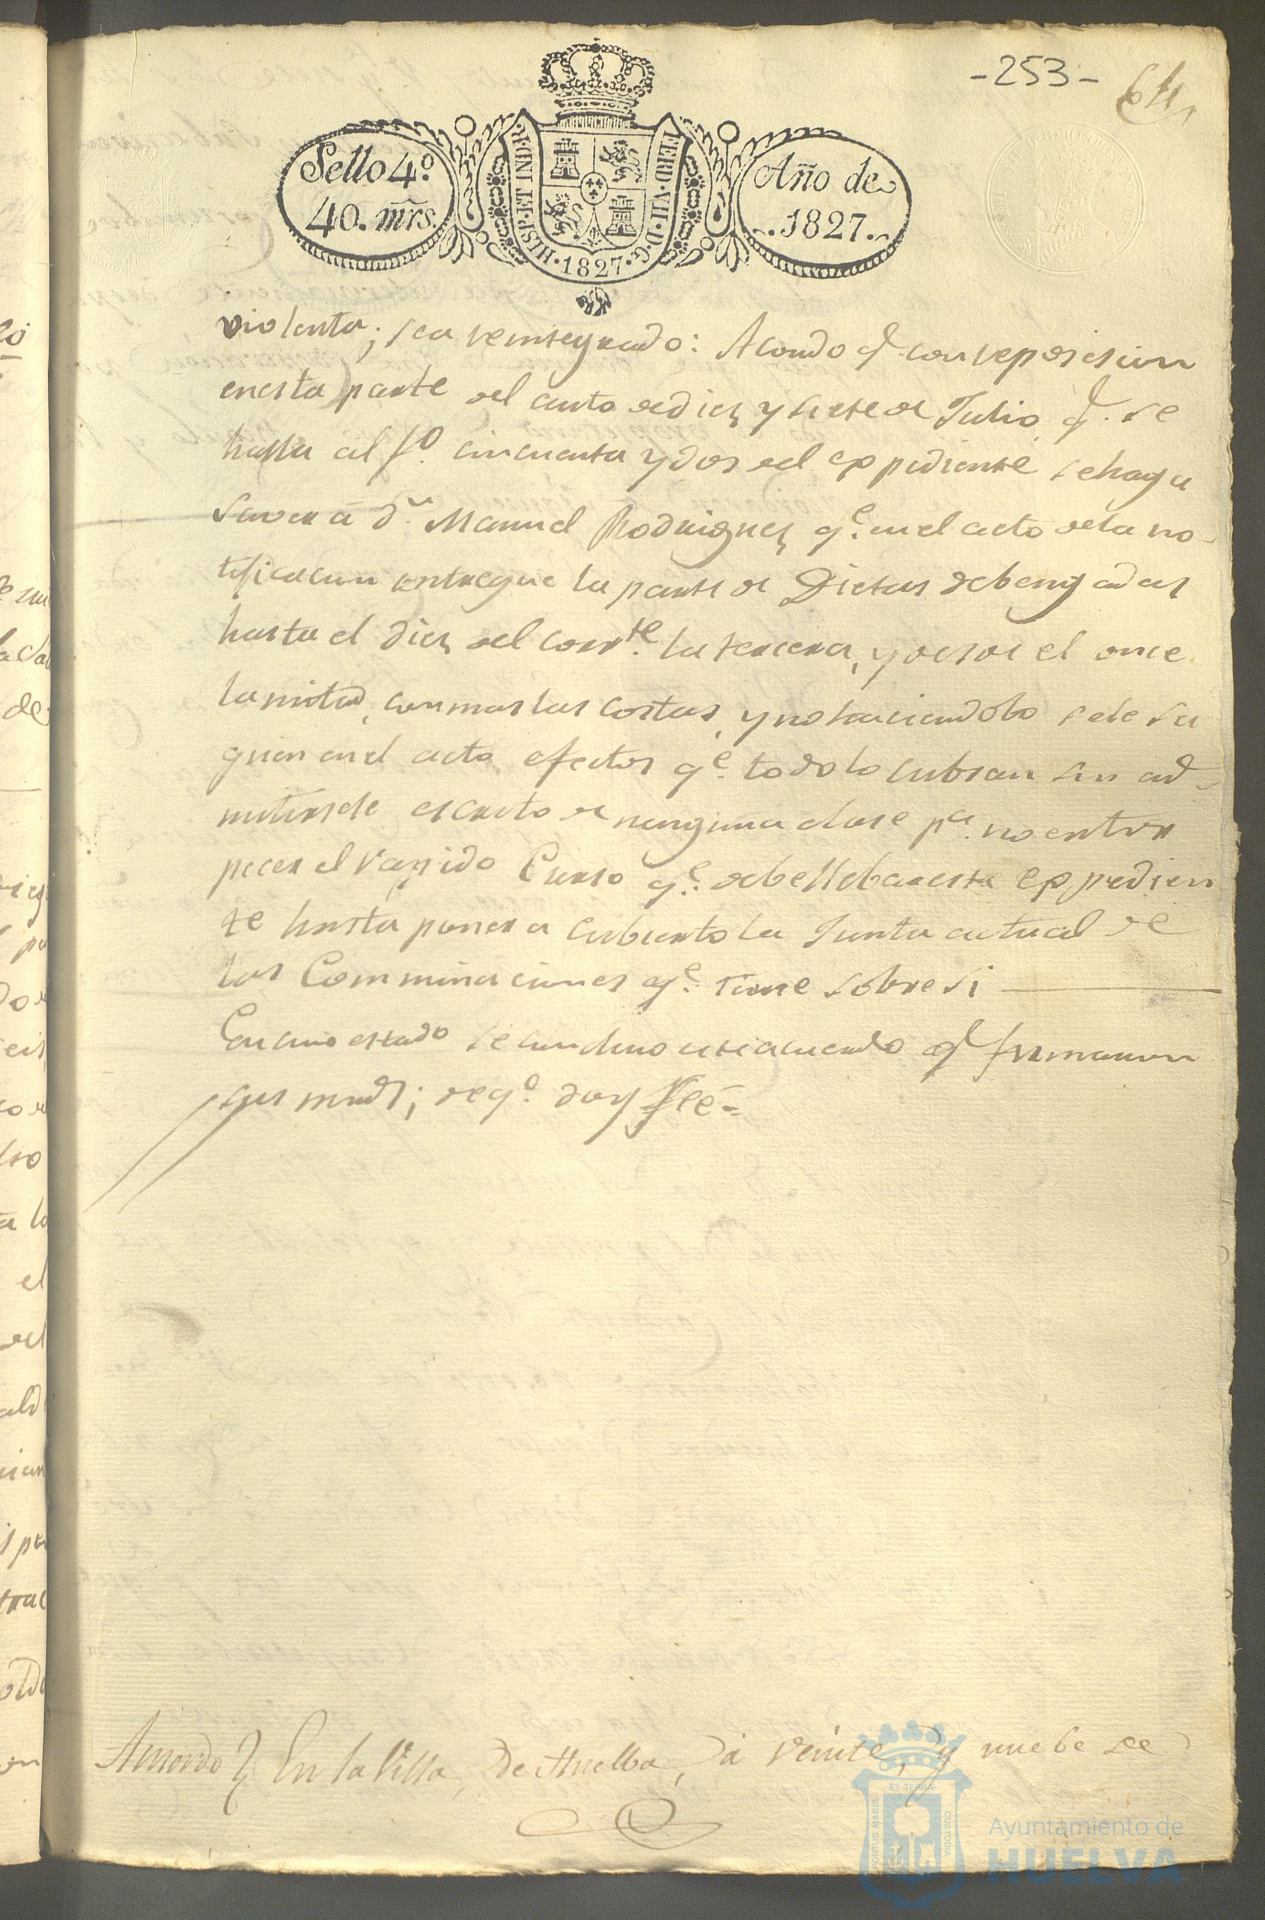 -253- 64
Sello 4.º
40. mrs.
HISP. ET IND. R.
FERD. VII. D. G.
1827.
Año de
1827.
violenta; sea reintegrado: Acordo q.e con reposesion
en esta parte del auto de diez y siete de Julio, q.e se
halla al f.o cincuenta y dos del expediente se haga
saver á d.n Manuel Rodriguez q.e en el acto de la no-
tificacion entregue la parte de Dietas debengadas
hasta el diez del corr.te la tercera, y desde el once
la mitad, con mas las costas, y no haciendolo se le sa
quen en el acto efectos q.e todo lo cubran sin ad-
mitirsele escrito de ninguna clase p.a no entor
pecer el rapido Curso q.e debe llebar este expedien
te hasta poner a cubierto la Junta actual de
las Comminaciones q.e tiene sobre si
En cuio estado se concluio este acuerdo q.e firmaron
sus mrds; de q.e doy Feé=
Acuerdo En la Villa, de Huelba, á veinte, y nuebe de
PORTUS MARIS ET TERRAE CUSTODIA
Ayuntamiento de
HUELVA